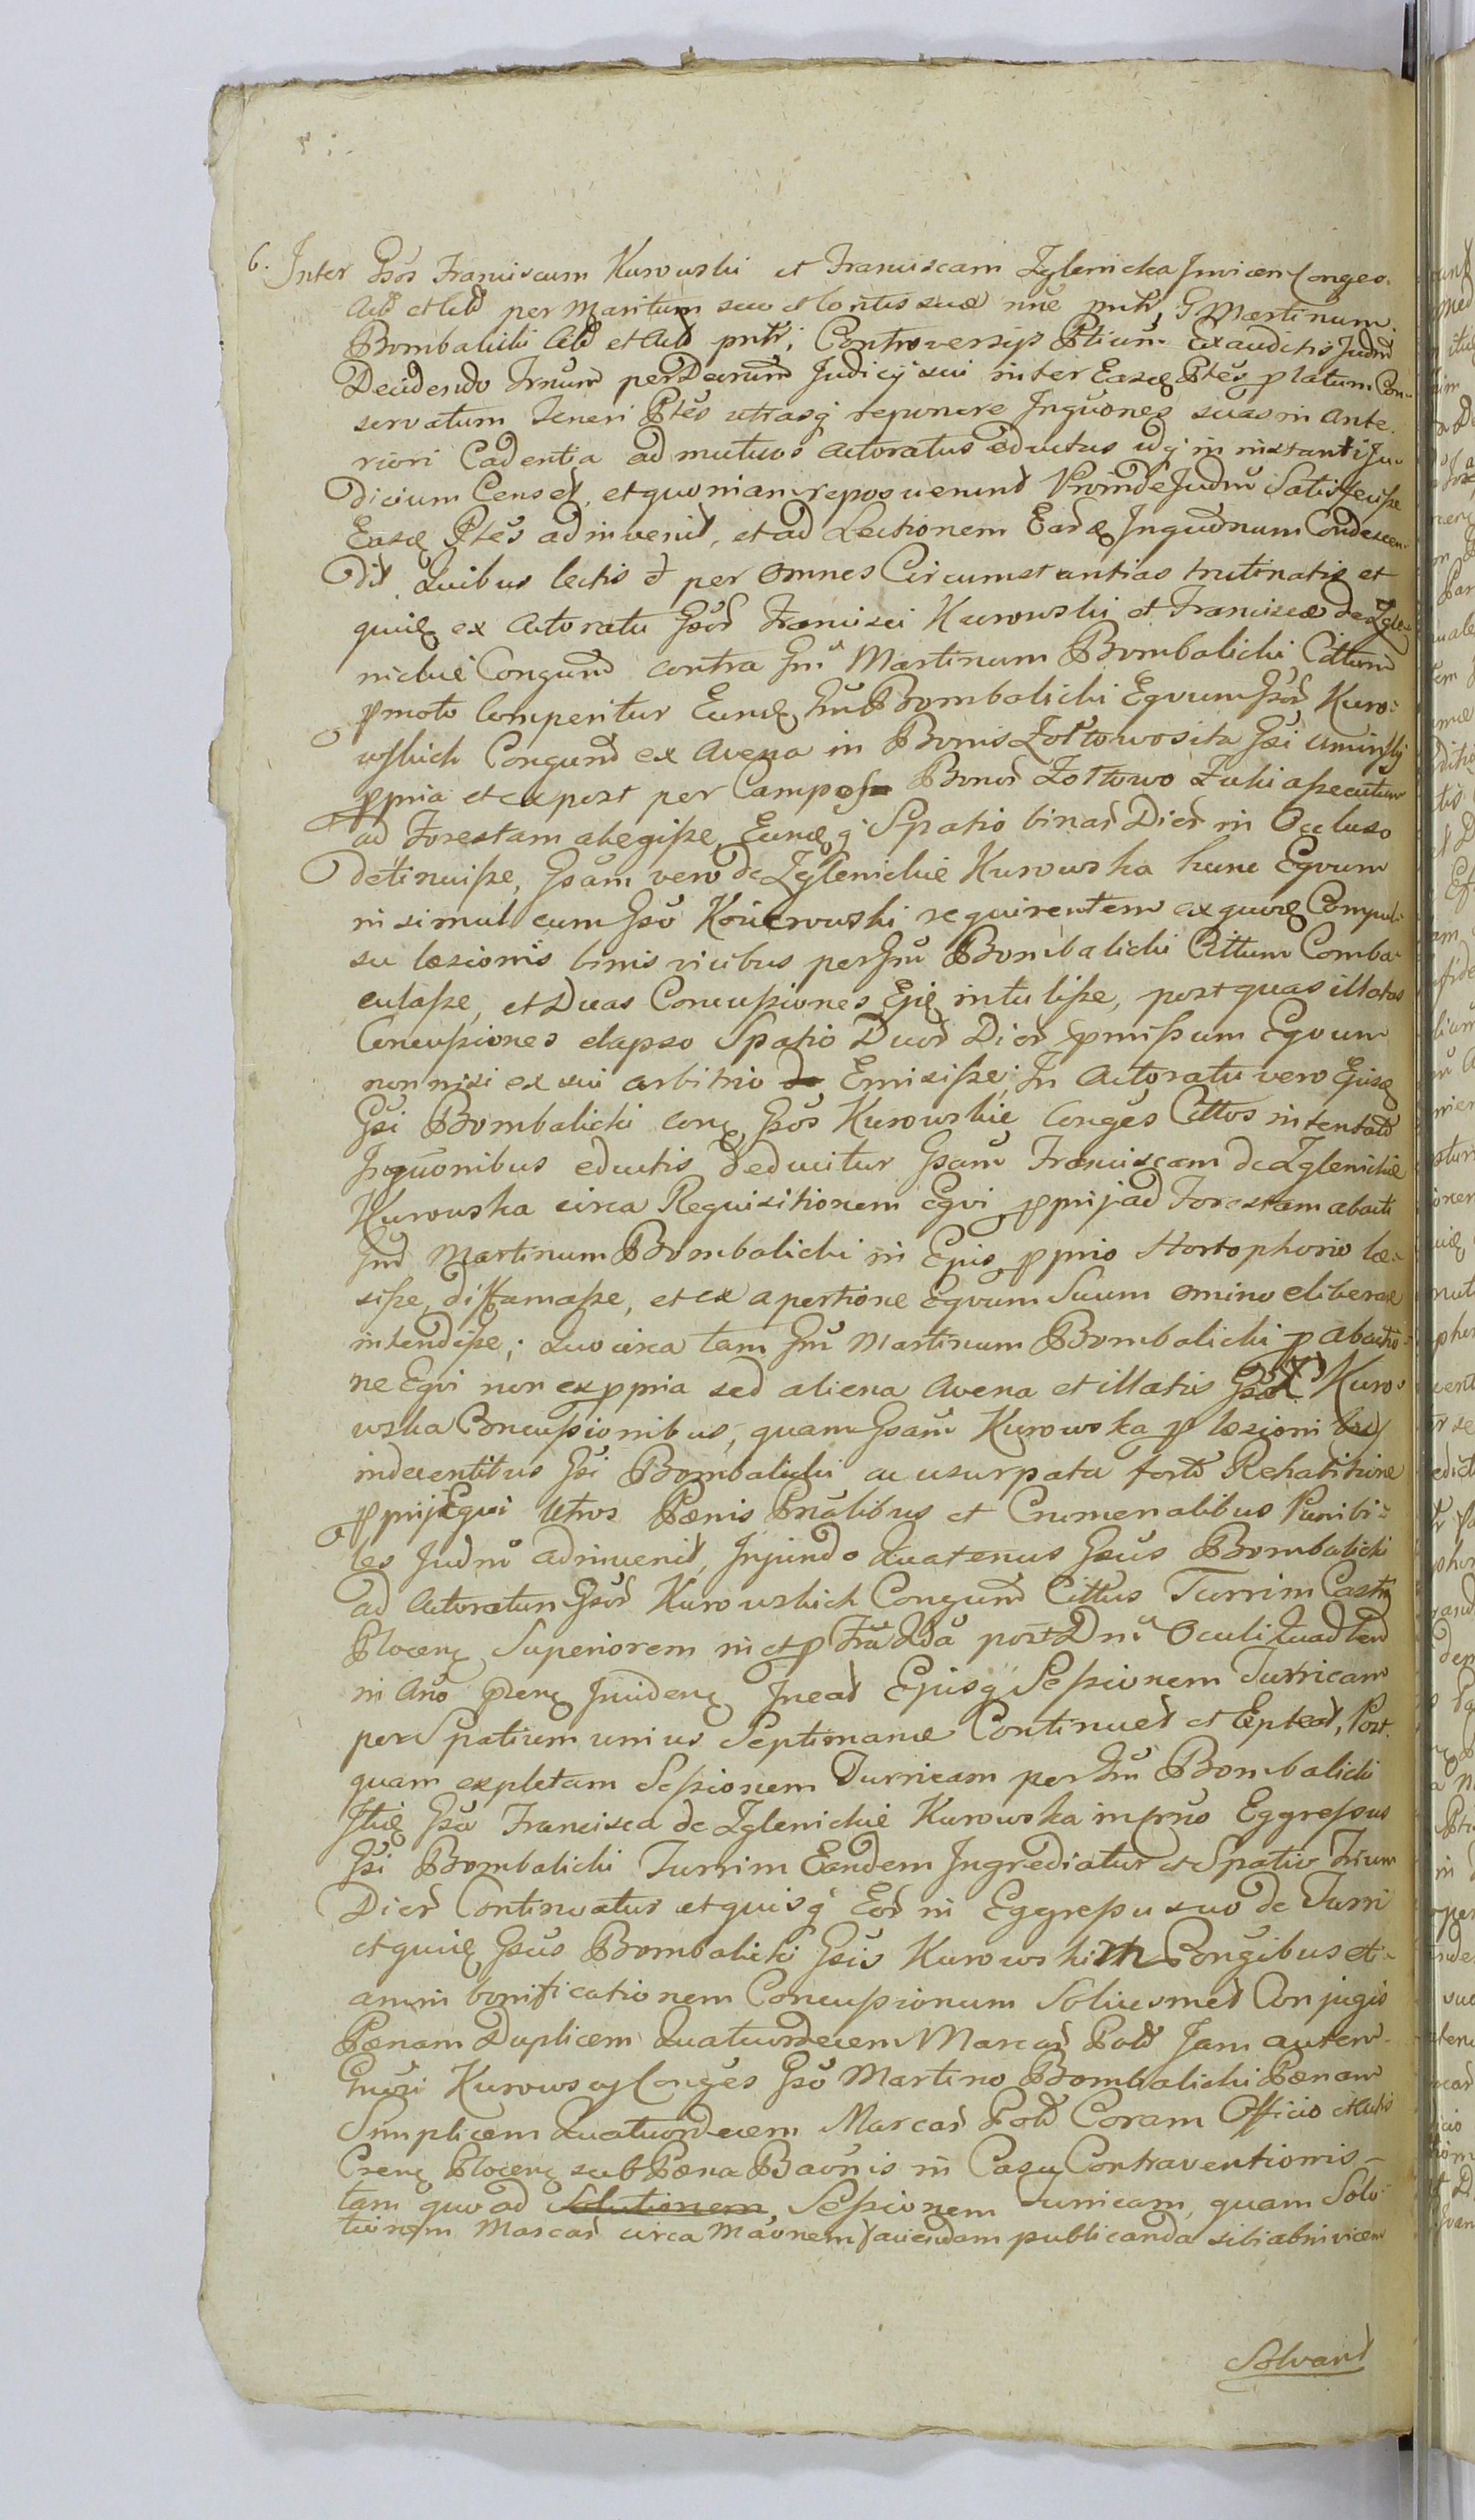 6. Inter Gsos Franciscum Kurowski et Franciscam Zglenicka Invicem Conges.
Act et Citt per Maritum suu et Contis suæ nne pntr, G Martinum
Bombalicki Act et Citt pntr; Controversijs Ptium Exauditis Judm
Decidendo Trnum per Decrum Judicij sui inter Easdę Ptes platum Con-
servatum Teneri Ptes utrasq reponere Inqūones suas in ante
riori Cadentia ad mutuos actoratus eductas idq in instanti Ju-
dicium Censet, et quoniam reposuerunt Proinde Judm Satisfecisse
Easdę Ptes adinvenit, et ad Lectionem Eardę Inquonum Condescen-
dit. Quibus lectis et per omnes Circumstantias trutinatis et
quię ex actoratu Gsor Francisci Kurowski et Franciscæ de Zgle-
nickie Congum contra Gm Martinum Bombalicki Cittum
pmoto Comperitur Eundę Gm Bombalicki Eqvum Gsor Kuro-
wskich Congum ex Avena in Bonis Żołtowo sita Gsi Uminsky
ppria et ex post per Campos Bonor Żołtowo Zuki assecutum
ad Forestam abegisse, Eundęq Spatio binar Dier in Occluso
detinuisse, Gsam vero de Zglenickie Kurowska hunc Eqvum
in simul cum Gso Kurowski requirentem ex quadę Compul-
su læsionis binis vicibus per Gm Bombalicki Cittum Comba-
culasse, et Duas Concussiones Ejdę intulisse, post quas illatas
Concussiones elapso Spatio Duor Dier pmissum Eqvum
non nisi ex sui arbitrio Emisisse; In Actoratu vero Ejusdę
Gsi Bombalicki conę Gsos Kurowskie Conges Cittos intentato
Inquonibus eductis deducitur Gsam Franciscam de Zglenickie
Kurowska circa Requisitionem Eqvi pprij ad Forestam abacti
Gm Martinum Bombalicki in Ejus pprio Hortophorio læ-
sisse, diffamasse, et ex apertione Eqvum Suum omino eliberare
intendisse; Quocirca tam Gm Martinum Bombalicki p abactio-
ne Eqvi non ex ppria sed aliena Avena et illatis Kuro-
wska Concussionibus, quam Gsam Kurowska p læsionibus
indecentibus Gsi Bombalicki ac usurpata forti Rehabitione
pprij Eqvi Utros Pænis Prsalibus et Crumenalibus Punibi-
les Judm adinvenit, Injundo Quatenus Gsus Bombalicki
ad Actoratum Gsor Kurowskich Congum Cittus Turrim Castrę
Plocenę Superiorem in et p Fria 2da post Dni Oculi Quad
in Ano Præsenę Incidenę Ineat Ejusq Sessionem Turricam
per Spatium unius Septimanæ Continuet et Expleat, Post
quam expletam Sessionem Turricam per Gm Bombalicki
Itię Gsa Francisca de Zglenickie Kurowska in Eggressus
Gsi Bombalicki Turrim Eandem Ingrediatur et Spatio Trium
Dier Continuatur et quisq Eor in Eggressu suo de Turri
et quię Gsus Bombalicki Gsis Kurowskim Congibus eti-
am in bonificationem Concussionum Soliusmet Conjugis
Pænam Duplicem Quatuordecem Marcar Pold Jam autem
Gnūsi Kurowscy Conges Gso Martino Bombalicki Pænam
Simplicem Quatuordecem Marcar Pold Coram Officio et Actis
Crenę Plocenę sub Pæna Baonis in Casu Contraventionis
tam quoad Solutionem Sessionem Turricam, quam Solu-
tionem Marcar circa Maonem faciendam publicanda sibi abinvicem
Solvant